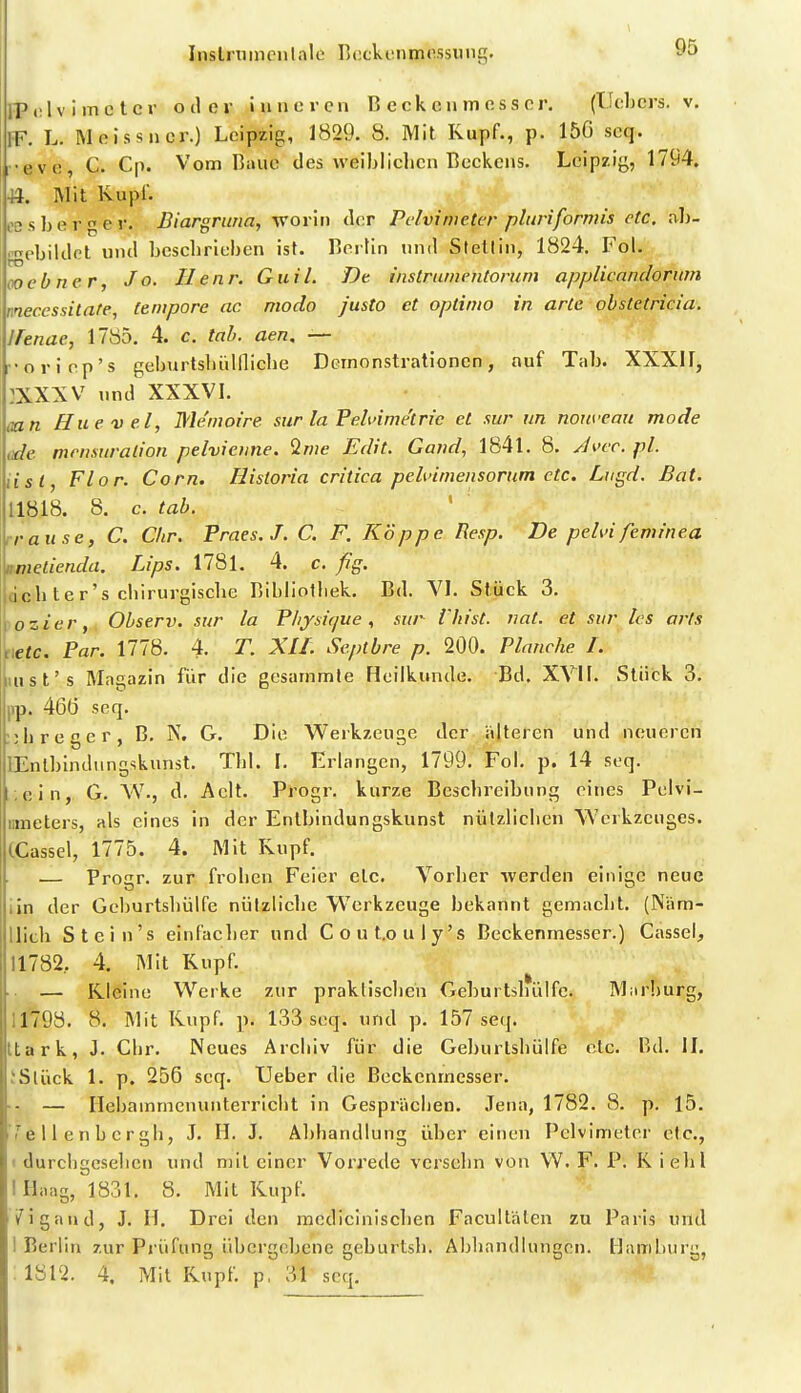 Instrumentale Beckenmessung.
95
Pelvimeter oder inneren Beckenmesser. (Uebers. v.
F. L. Meissner.) Leipzig, 1829. 8. Mit Kupf., p. 156 seq.
eve, C. Cp. Vom Baue des weiblichen Beckens. Leipzig, 1794.
4. Mit Kupf.
esberger. Biargruna, worin der Pelvimeter pluriformis etc. ab-
gebildet und beschrieben ist. Berlin und Stettin, 1824. Fol.
oebner, Jo. Henr. Guil. De instrumentorum applicandorum
necessitate, tempore ac modo justo et optimo in arte obstetricia.
Jenae, 1785. 4. c. tab. aen. —
oriep's geburtshülfliche Demonstrationen, auf Tab. XXXII,
XXXV und XXXVI.
an Huevel, Mémoire sur la Pelvimétrie et sur un nouveau mode
de mensuration pelvienne. 2me Edit. Gand, 1841. 8. Avec. pl.
ist, Flor. Corn. Historia critica pelvimensorum etc. Lugd. Bat.
1818. 8. c. tab.
rause, C. Chr. Praes. J. C. F. Köppe Resp. De pelvi feminea
metienda. Lips. 1781. 4. c. fig.
ichter's chirurgische Bibliothek. Bd. VI. Stück 3.
ozier, Observ. sur la Physique, sur l'hist. nat. et sur les arts
etc. Par. 1778. 4. T. XII. Septbre p. 200. Planche I.
ust's Magazin für die gesammte Heilkunde. Bd. XVII. Stück 3.
p. 466 seq.
hreger, B. N. G. Die Werkzeuge der älteren und neueren
Entbindungskunst. Thl. I. Erlangen, 1799. Fol. p. 14 seq.
ein, G. W., d. Aelt. Progr. kurze Beschreibung eines Pelvi-
meters, als eines in der Entbindungskunst nützlichen Werkzeuges.
Cassel, 1775. 4. Mit Kupf.
— Progr. zur frohen Feier etc. Vorher werden einige neue
in der Geburtshülfe nützliche Werkzeuge bekannt gemacht. (Näm-
lich Stein's einfacher und Coutouly's Beckenmesser.) Cassel,
1782. 4. Mit Kupf.
— Kleine Werke zur praktischen Geburtshülfe. Marburg,
1798. 8. Mit Kupf. p. 133 seq. und p. 157 seq.
tark, J. Chr. Neues Archiv für die Geburtshülfe etc. Bd. II.
Stück 1. p. 256 seq. Ueber die Beckenmesser.
— Hebammenunterricht in Gesprächen. Jena, 1782. 8. p. 15.
ellenbergh, J. H. J. Abhandlung über einen Pelvimeter etc.,
durchgesehen und mit einer Vorrede versehn von W. F. P. Kiehl
Haag, 1831. 8. Mit Kupf.
igand, J. H. Drei den medicinischen Facultäten zu Paris und
Berlin zur Prüfung übergebene geburtsh. Abhandlungen. Hamburg,
1812. 4. Mit Kupf. p. 31 seq.